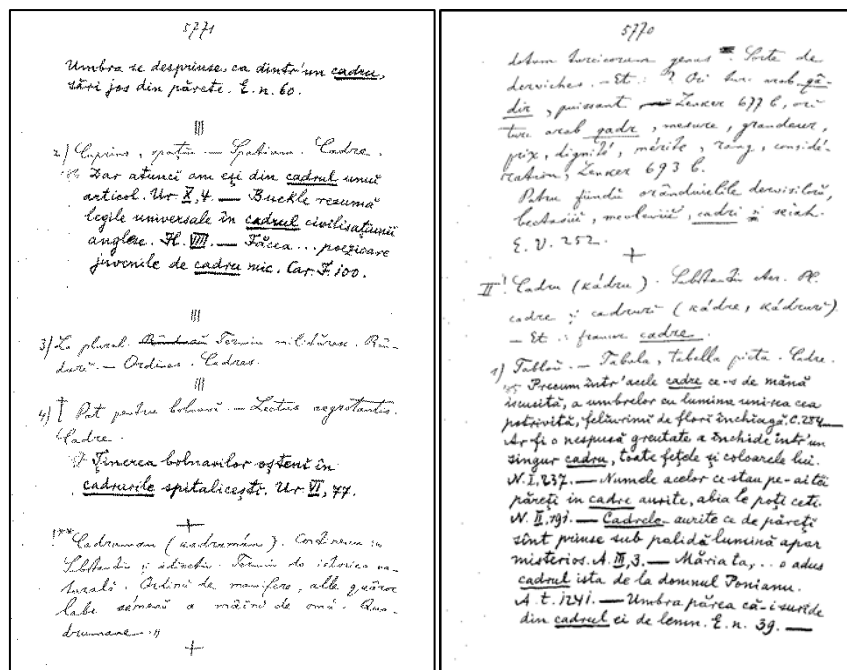 5771
Umbra se desprinse, ca dintr'un cadru,
sări jos din părete. E. n. 60.
2) Cuprins, spațiu. — Spatium. Cadre.
Dar atunci am eși din cadrul unui
articol. Ur X, 4. — Buckle rezumă
legile universale în cadrul civilisațiunii
angleze. H. VIIII. — Făcea... poezioare
juvenile de cadru mic. Car. J. 100.
3) La plural. Termin militáresc. Rîn-
duri. — Ordines. Cadres.
4) † Pat pentru bolnavi. — Lectus aegrotantis.
Cadre.
Ținerea bolnavilor oșteni în
cadrurile spitalicești. Ur VI, 77.
Cadruman (kadrumán).
Substantiv și adiectiv. Termin de istorica na-
turală. Ordinŭ de mamifere, alle quăror
labe sémenă a mâini de omŭ. Qua-
drumane.
5770
dotum turcicorum genus. Sorte de
derviches. — Et.: ? Ori turc. arab gâ-
dir, puissant, Zenker 677 b, ori
turc. arab gadr, mesure, grandeur,
prix, dignité, mérite, rang, considé-
ration, Zenker 693 b.
Patru fundŭ orănduielile dervișilorŭ,
bectașii, mevlevii, cadri și seiah.
E. V. 252.
II. Cadru (kádru). Substantiv Pl.
cadre și cadruri (kádre, kádruri).
— Et.: francez cadre.
1) Tabloŭ. — Tabula, tabella picta. Cadre.
Precum într'acele cadre ce-s de mână
iscusită, a umbrelor cu lumina unirea cea
potrivită, felăurimi de flori închiagă, C. 254. —
Ar fi o nespusă greutate a închide într'un
singur cadru, toate fețele și coloarele lui.
N. I, 237. — Numele acelor ce stau pe-aită
păreți in cadre aurite, abia le poți ceti.
N. II, 191. — Cadrele aurite ce de păreți
sînt prinse sub palidă lumină apar
misterios. A. III, 3. — Măria ta, .. o adus
cadrul ista de la domnul Ponianu.
A. t. 1241. — Umbra părea că-i surîde
din cadrul ei de lemn. E. n. 39. —